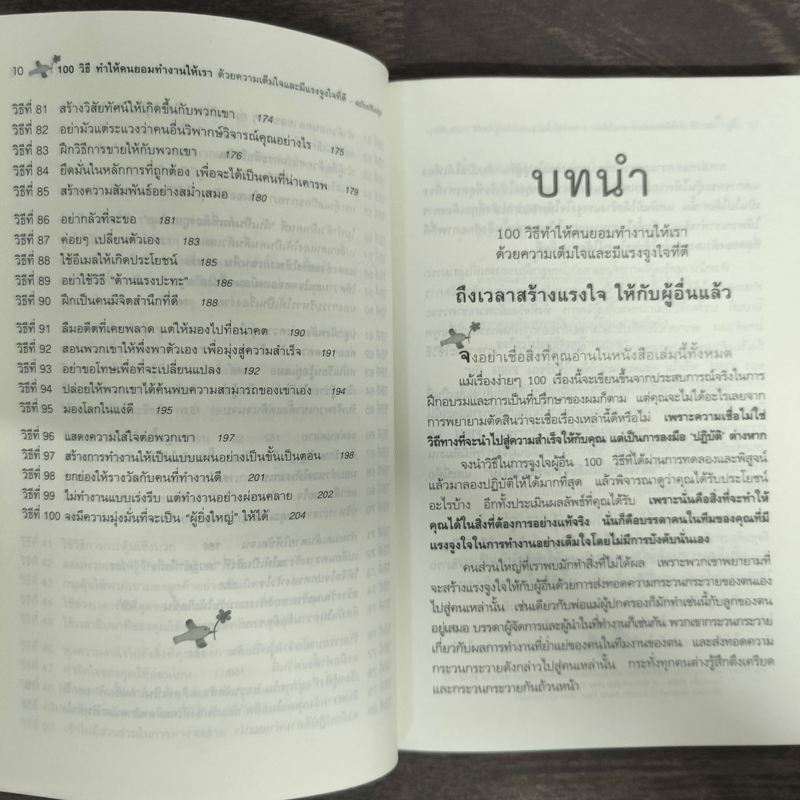 10 100 วิธี ทำให้คนยอมทำงานให้เรา ด้วยความเต็มใจและมีแรงจูงใจที่ดี -
วิธีที่ 81 สร้างวิสัยทัศน์ให้เกิดขึ้นกับพวกเขา 174
วิธีที่ 82 อย่ามัวแต่ระแวงว่าคนอื่นวิพากษ์วิจารณ์คุณอย่างไร 175
วิธีที่ 83 ฝึกวิธีการขายให้กับพวกเขา 176
วิธีที่ 84 ยึดมั่นในหลักการที่ถูกต้อง เพื่อจะได้เป็นคนที่น่าเคารพ 179
วิธีที่ 85 สร้างความสัมพันธ์อย่างสม่ำเสมอ 180
วิธีที่ 86 อย่ากลัวที่จะขอ 181
วิธีที่ 87 ค่อยๆ เปลี่ยนตัวเอง 183
วิธีที่ 88 ใช้อีเมลให้เกิดประโยชน์ 185
วิธีที่ 89 อย่าใช้วิธี "ต้านแรงปะทะ" 186
วิธีที่ 90 ฝึกเป็นคนมีจิตสำนึกที่ดี 188
วิธีที่ 91 ลืมอดีตที่เคยพลาด แต่ให้มองไปที่อนาคต 190
วิธีที่ 92 สอนพวกเขาให้พึ่งพาตัวเอง เพื่อมุ่งสู่ความสำเร็จ 191
วิธีที่ 93 อย่าขอโทษเพื่อที่จะเปลี่ยนแปลง 192
วิธีที่ 94 ปล่อยให้พวกเขาได้ค้นพบความสามารถของเขาเอง 194
วิธีที่ 95 มองโลกในแง่ดี 195
วิธีที่ 96 แสดงความใส่ใจต่อพวกเขา 197
วิธีที่ 97 สร้างการทำงานให้เป็นแบบแผนอย่างเป็นขั้นเป็นตอน 198
วิธีที่ 98 ยกย่องให้รางวัลกับคนที่ทำงานดี 201
วิธีที่ 99 ไม่ทำงานแบบเร่งรีบ แต่ทำงานอย่างผ่อนคลาย 202
วิธีที่ 100 จงมีความมุ่งมั่นที่จะเป็น "ผู้ยิ่งใหญ่" ให้ได้ 204
บทนำ
100 วิธีทำให้คนยอมทำงานให้เรา
ด้วยความเต็มใจและมีแรงจูงใจที่ดี
ถึงเวลาสร้างแรงใจ ให้กับผู้อื่นแล้ว
จงอย่าเชื่อสิ่งที่คุณอ่านในหนังสือเล่มนี้ทั้งหมด
แม้เรื่องง่ายๆ 100 เรื่องนี้จะเขียนขึ้นจากประสบการณ์จริงในการ
ฝึกอบรมและการเป็นที่ปรึกษาของผมก็ตาม แต่คุณจะไม่ได้อะไรเลยจาก
การพยายามตัดสินว่าจะเชื่อเรื่องเหล่านี้ดีหรือไม่ เพราะความเชื่อไม่ใช่
วิถีทางที่จะนำไปสู่ความสำเร็จให้กับคุณ แต่เป็นการลงมือ 'ปฏิบัติ' ต่างหาก
จงนำวิธีในการจูงใจผู้อื่น 100 วิธีที่ได้ผ่านการทดลองและพิสูจน์
แล้วมาลองปฏิบัติให้ได้มากที่สุด แล้วพิจารณาดูว่าคุณได้รับประโยชน์
อะไรบ้าง อีกทั้งประเมินผลลัพธ์ที่คุณได้รับ เพราะนั่นคือสิ่งที่จะทำให้
คุณได้ในสิ่งที่ต้องการอย่างแท้จริง นั่นก็คือบรรดาคนในทีมของคุณที่มี
แรงจูงใจในการทำงานอย่างเต็มใจโดยไม่มีการบังคับนั่นเอง
คนส่วนใหญ่ที่เราพบมักทำสิ่งที่ไม่ได้ผล เพราะพวกเขาพยายามที่
จะสร้างแรงจูงใจให้กับผู้อื่นด้วยการส่งทอดความกระวนกระวายของตนเอง
ไปสู่คนเหล่านั้น เช่นเดียวกับพ่อแม่ผู้ปกครองก็มักทำเช่นนี้กับลูกของตน
อยู่เสมอ บรรดาผู้จัดการและผู้นำในที่ทำงานก็เช่นกัน พวกเขากระวนกระวาย
เกี่ยวกับผลการทำงานที่ย่ำแย่ของคนในทีมงานของตน และส่งทอดความ
กระวนกระวายดังกล่าวไปสู่คนเหล่านั้น กระทั่งทุกคนต่างรู้สึกตึงเครียด
และกระวนกระวายกันถ้วนหน้า